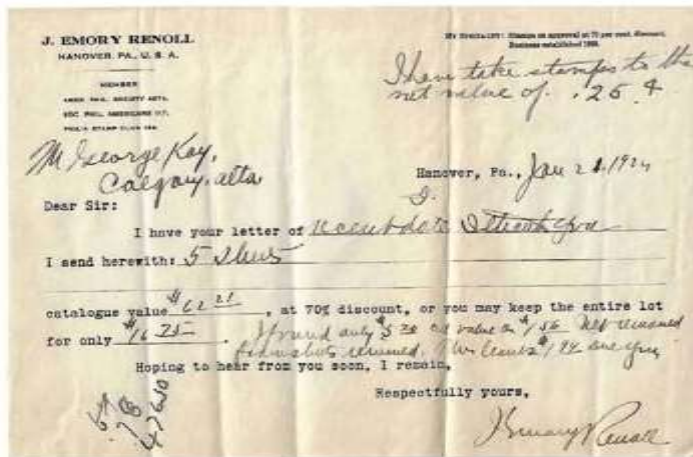 J. EMORY RENOLL
HANOVER, PA., U. S. A.
MEMBER
MY SPECIALTY: Stamps on approval at 70 per cent. discount.
Business established
I have take stamps to the
net value of .25 ¢
Mr George Kay,
Calgary, alta
Hanover, Pa., Jan 21, 192
Dear Sir:
I have your letter of recent date I thank you
I send herewith: 5 Shts
catalogue value $62 21, at 70% discount, or you may keep the entire lot
for only $16 25. I found only $5 20 value or $1 56 net removed
from shts returned. This leaves $1 94 due you
Hoping to hear from you soon, I remain,
Respectfully yours,
J Emory Renoll